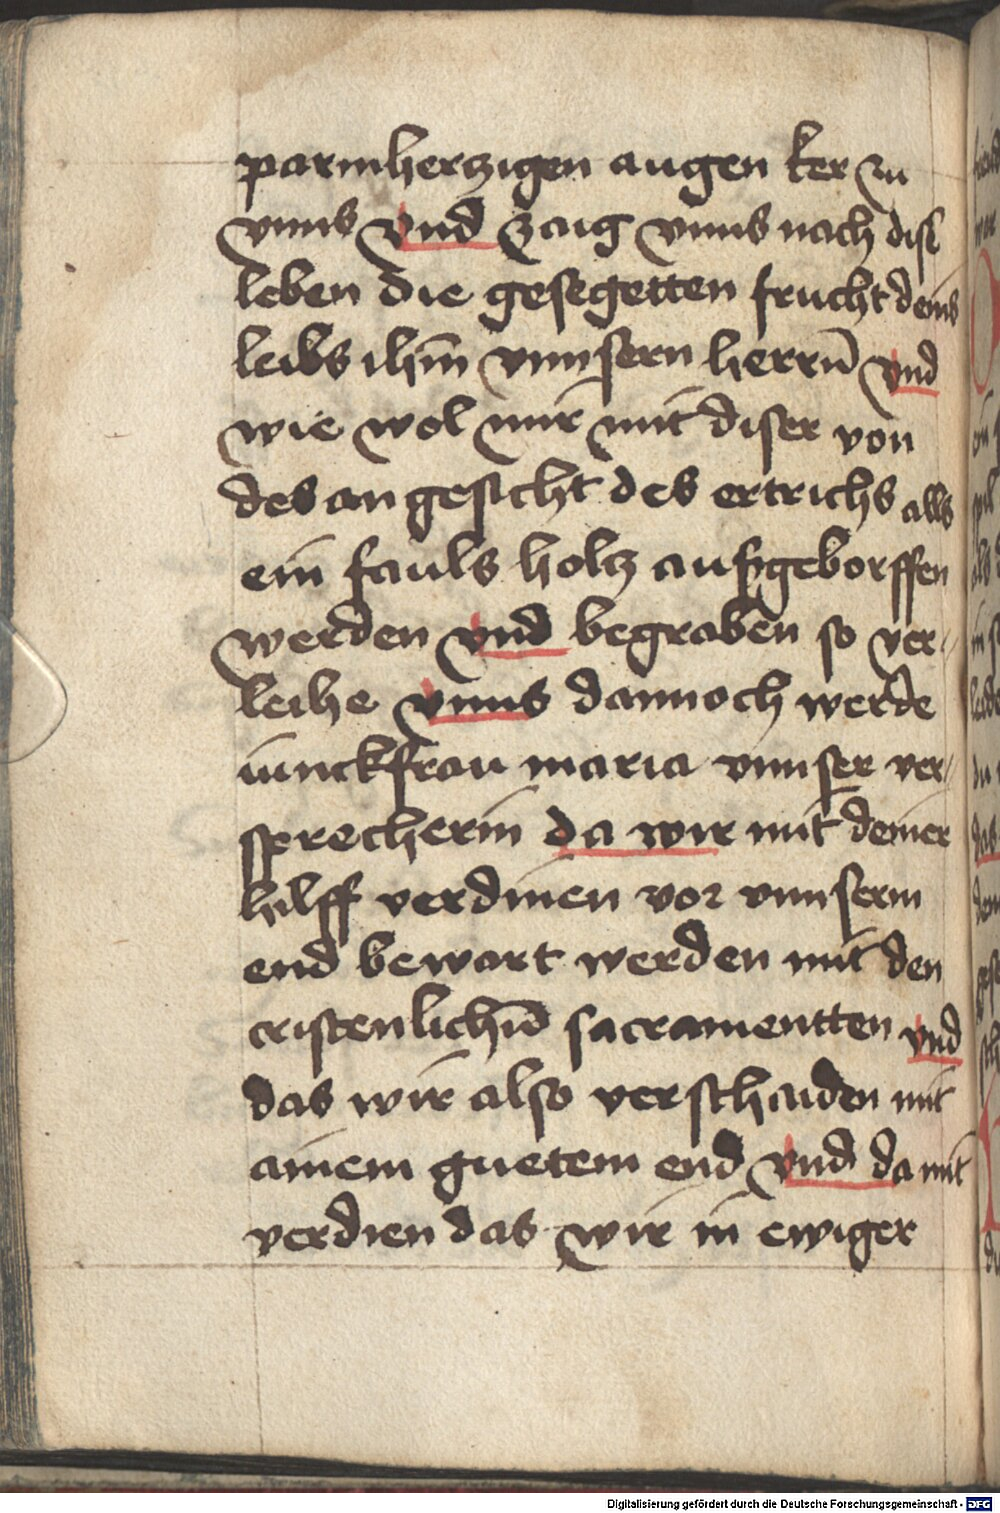 parmhertzigen augen ker zu
vnns vnd zaig vnns nach disē
leben die gesegetten frucht deins
leibs ihm̄ vnnsern herrn̄ vnd
wie wol mir mit diser von
des angesicht des ertrichs alls
ein fauls holtz aufzgeborffen
werden vnd begraben so ver-
leihe vnns dannoch werde
iunckfrau maria vnnser ver-
sprecherin da wir mit deiner
hilff verdinen vor vnnserm
end bewart werden mit den
cristenlichn̄ sacramentten vnd
das wir also verschaiden mit
ainem guetem end vnd da mit
verdien das wir in ewiger
Digitalisierung gefördert durch die Deutsche Forschungsgemeinschaft - DFG